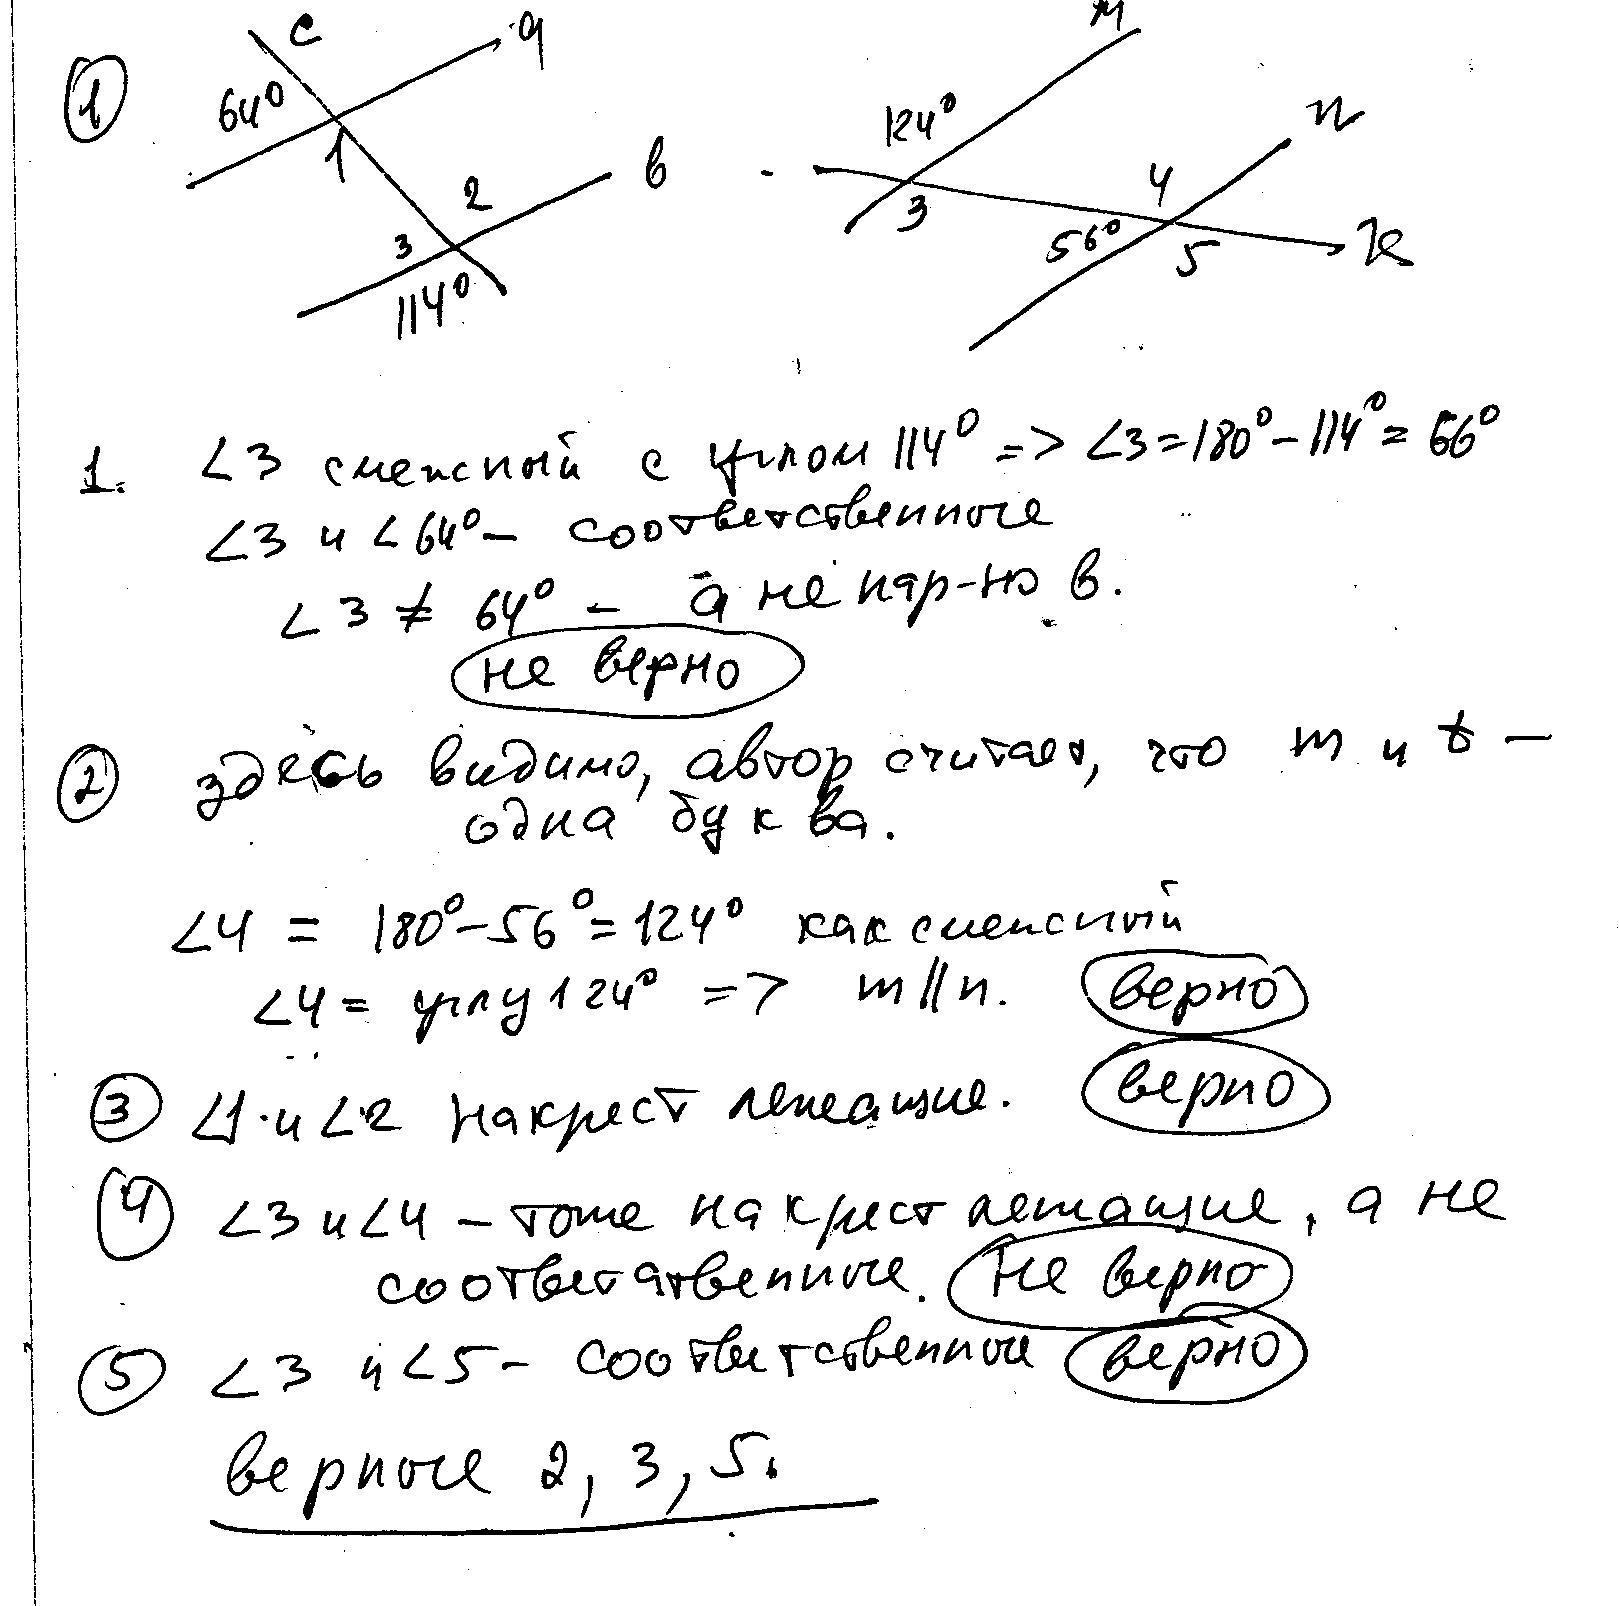 ①
c
a
64°
1
2
в
3
114°
м
124°
3
n
4
56°
5
к
1. ∠3 смежный с углом 114° => ∠3=180°-114°= 66°
∠3 и ∠64° - соответственные
∠3 ≠ 64° - а не пар-но в.
не верно
② здесь видимо, автор считает, что m и t -
одна буква.
∠4 = 180°-56°=124° как смежный
∠4 = углу 124° => m||n. верно
③ ∠1 и ∠2 накрест лежащие. верно
④ ∠3 и ∠4 - тоже накрест лежащие, а не
соответственные. не верно
⑤ ∠3 и ∠5 - соответственные верно
верные 2, 3, 5.